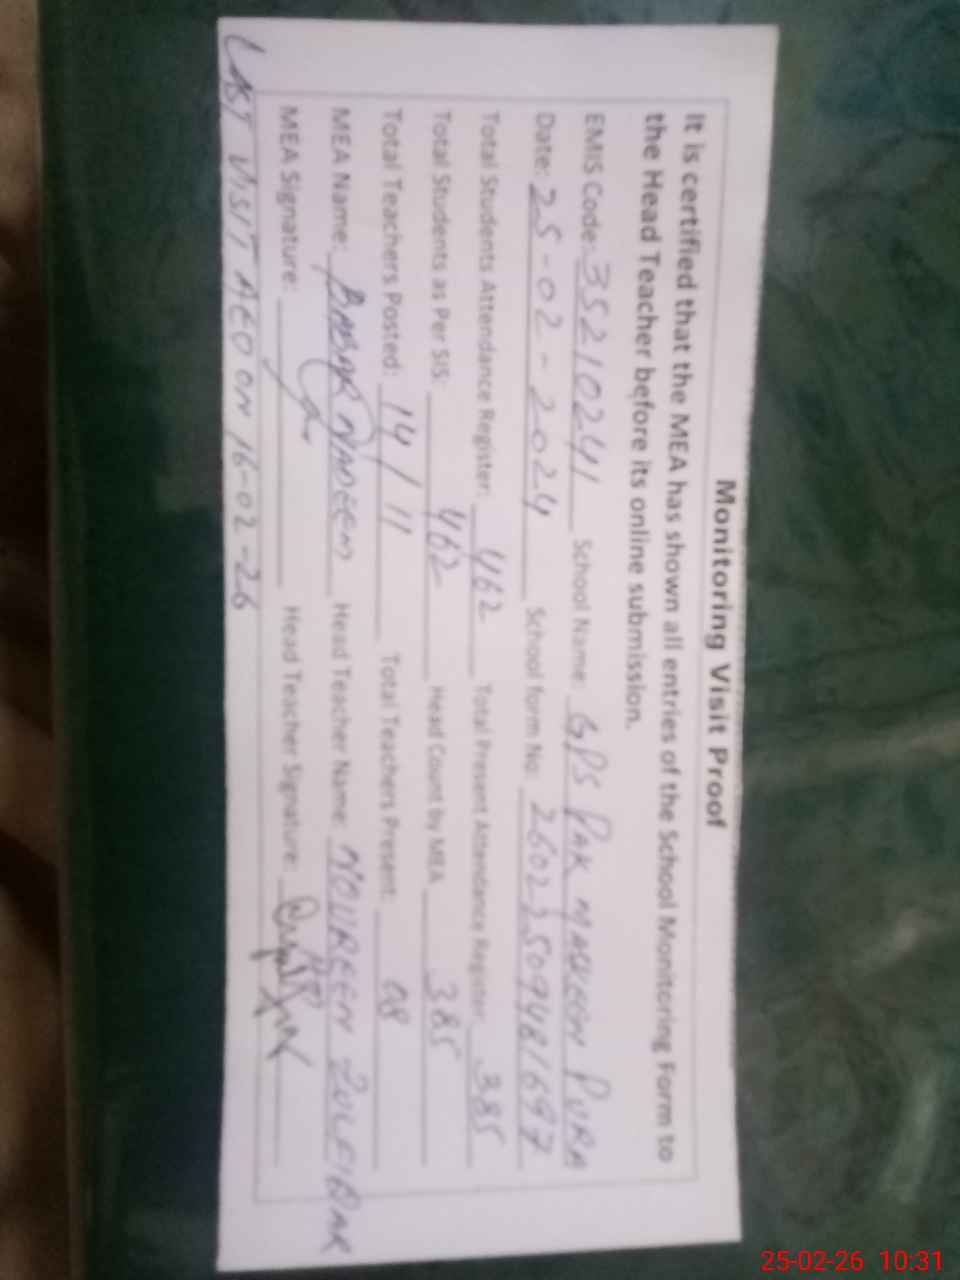 Monitoring Visit Proof
It is certified that the MEA has shown all entries of the School Monitoring Form to
the Head Teacher before its online submission.
EMIS Code: 35210241 School Name: GPS PAK MAKEEN PURA
Date: 25-02-2024 School form No:
Total Students Attendance Register: 462 Total Present Attendance Register 385
Total Students as Per SIS: 462 Head Count by MEA 385
Total Teachers Posted: 14/11 Total Teachers Present: 08
MEA Name: BABAR NADEEM Head Teacher Name: NOUREEN ZULFIQAR
MEA Signature: Head Teacher Signature:
LAST VISIT AEO ON 16-02-26
25-02-26 10:31